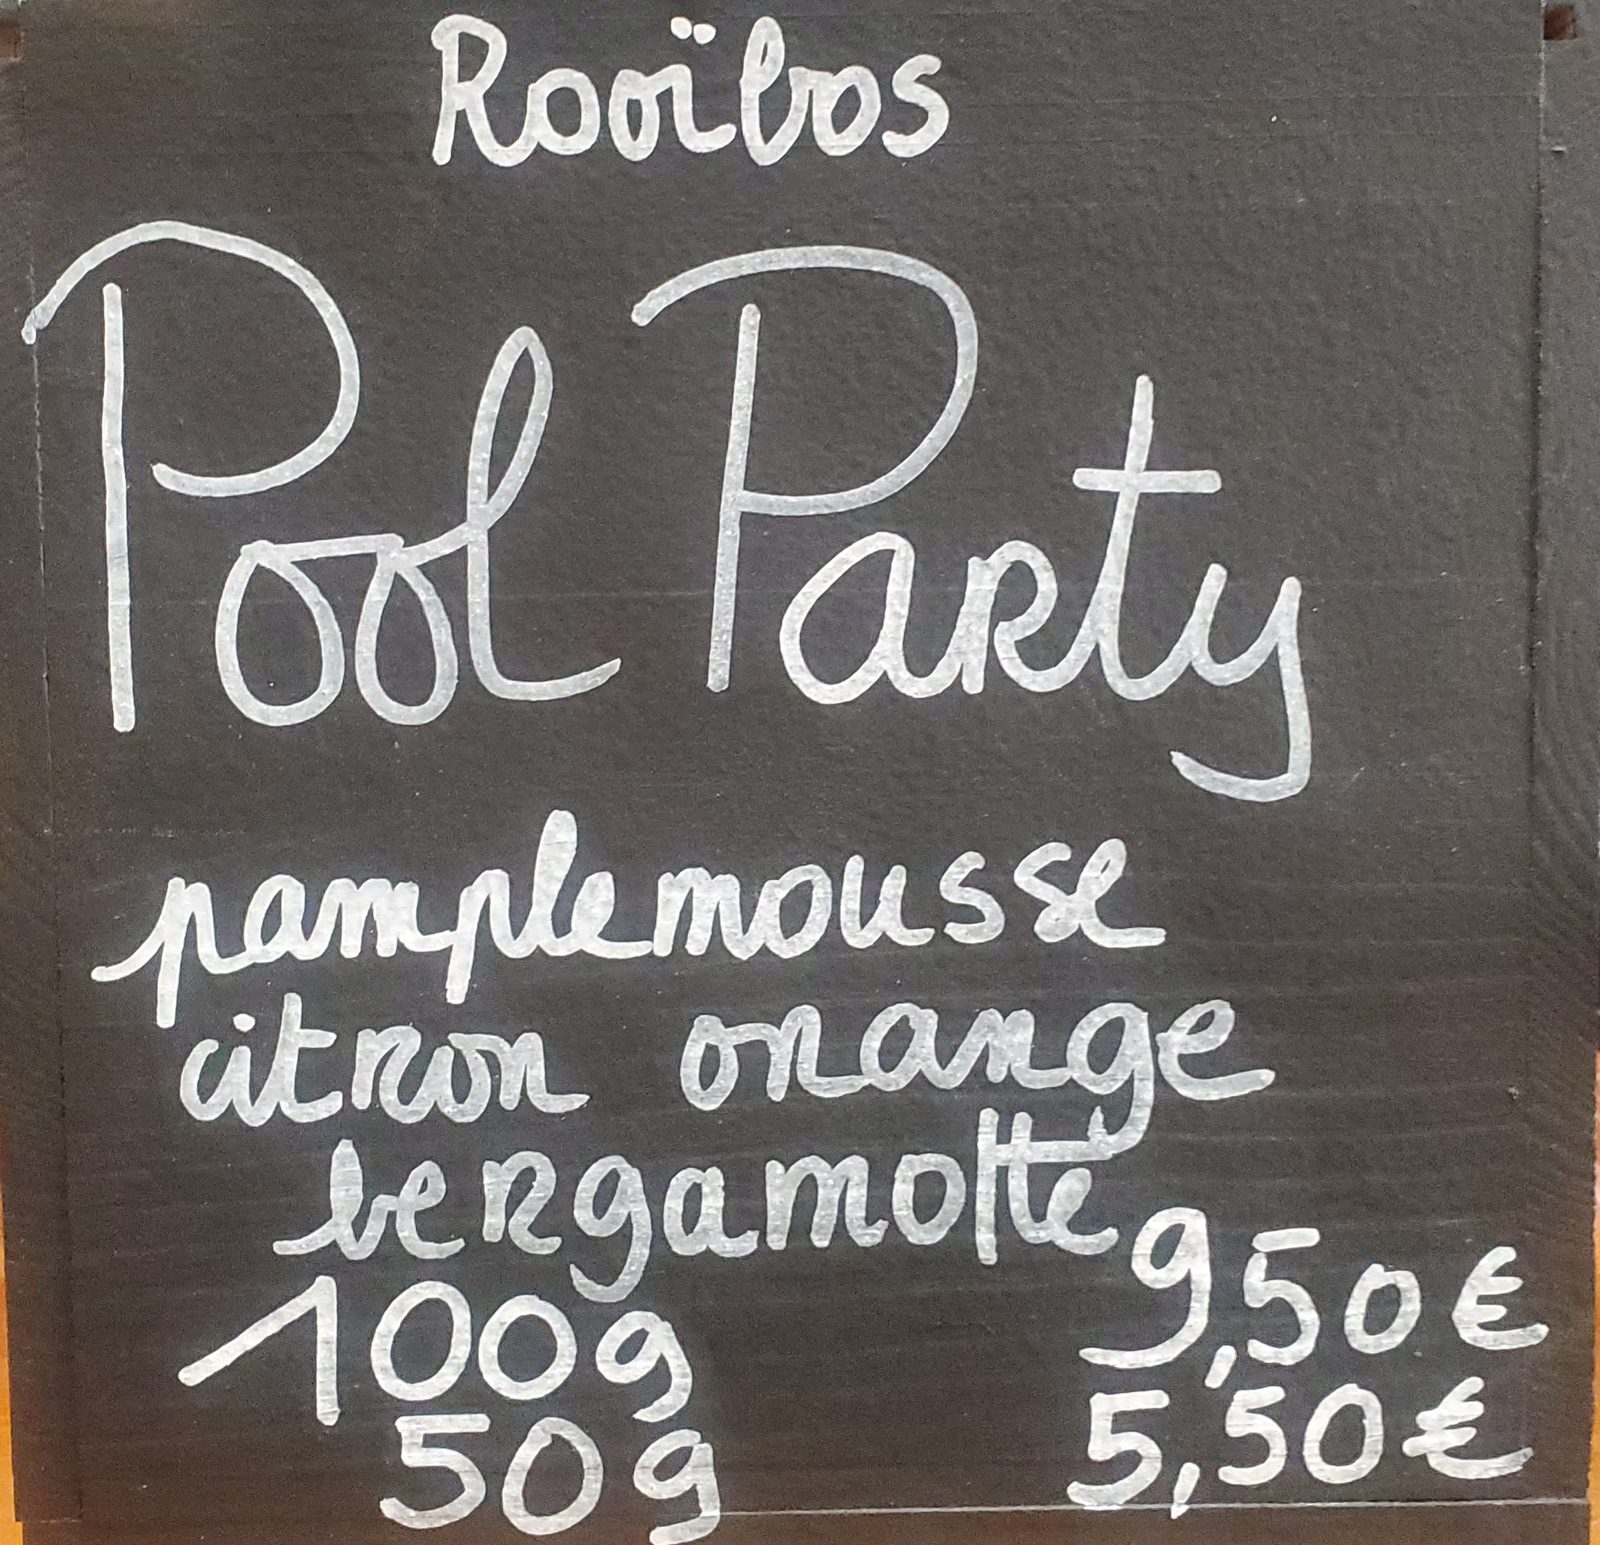 Rooïbos
Pool Party
pamplemousse
citron orange
bergamotte
100g 9,50€
50g 5,50€